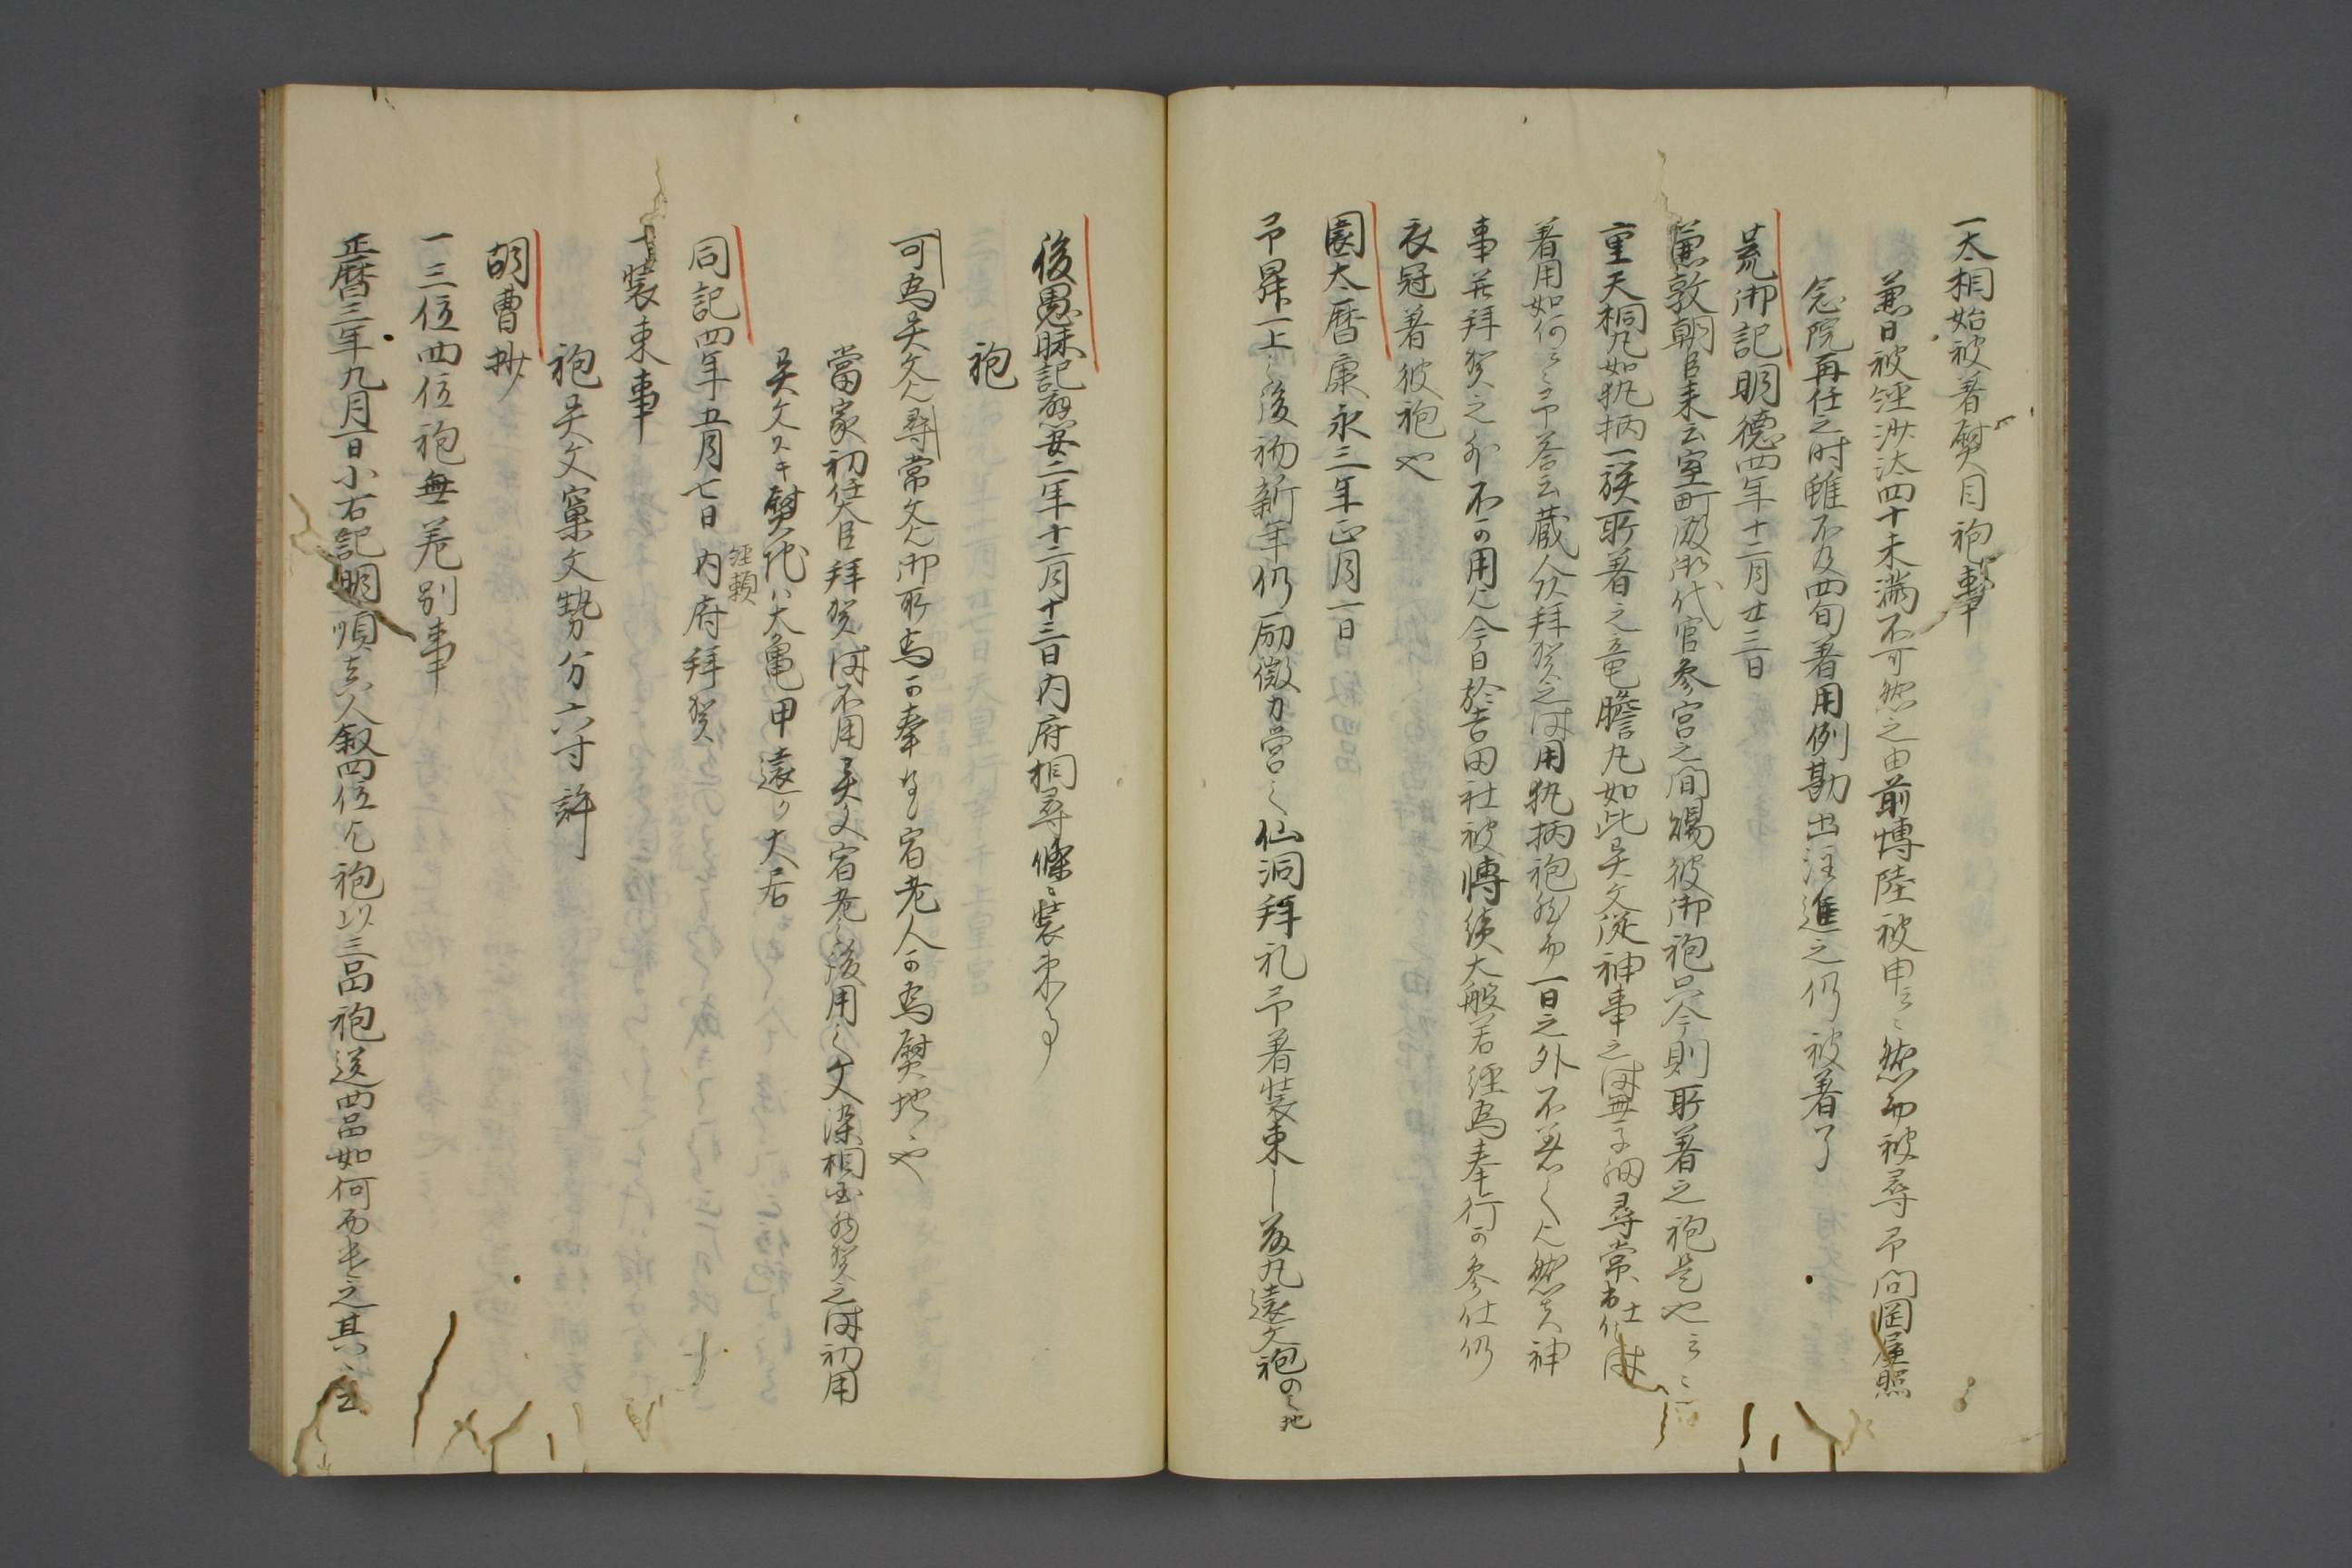 一太相始被着熨目袍事
兼日被経沙汰四十未満不可然之由前博陸被申云々然而被尋予問岡屋照
念院再任之時雖不及四旬着用例勘出注進之仍被着了
荒御記明徳四年十二月廿三日
兼敦朝臣来云室町殿御代官参宮之間賜彼御袍只今則所着之袍是也云々
重天桐丸如執柄一族所着之竜膽丸如此異文従神事之時無子細尋常出仕時
着用如何云々予答云蔵人以拝賀之時用執柄袍然而一日之外不着之也然者神
事并拝賀之外不可用也今日於吉田社被博読大般若経為奉行可参仕仍
衣冠着彼袍也
園太暦康永三年正月一日
予昇一上之後初新年仍励微力営之仙洞拝礼予着装束丸遠文袍
後愚昧記応安二年十二月十三日内府相尋条々装束事
袍
可為異文候尋常文候御所為可奉宿老人可為熨地也
当家初任大臣拝賀時不用異文宿老之後用之文染相国拝賀之時初用
異文スキ熨代ハ大亀甲遠リ大居
同記四年五月七日内府拝賀
経頼
一装束事
袍異文窠文勢分六寸許
胡曹抄
一三位四位袍無差別事
正暦三年九月一日小右記明順真人叙四位乞袍以三品袍送四品如何而遣之其